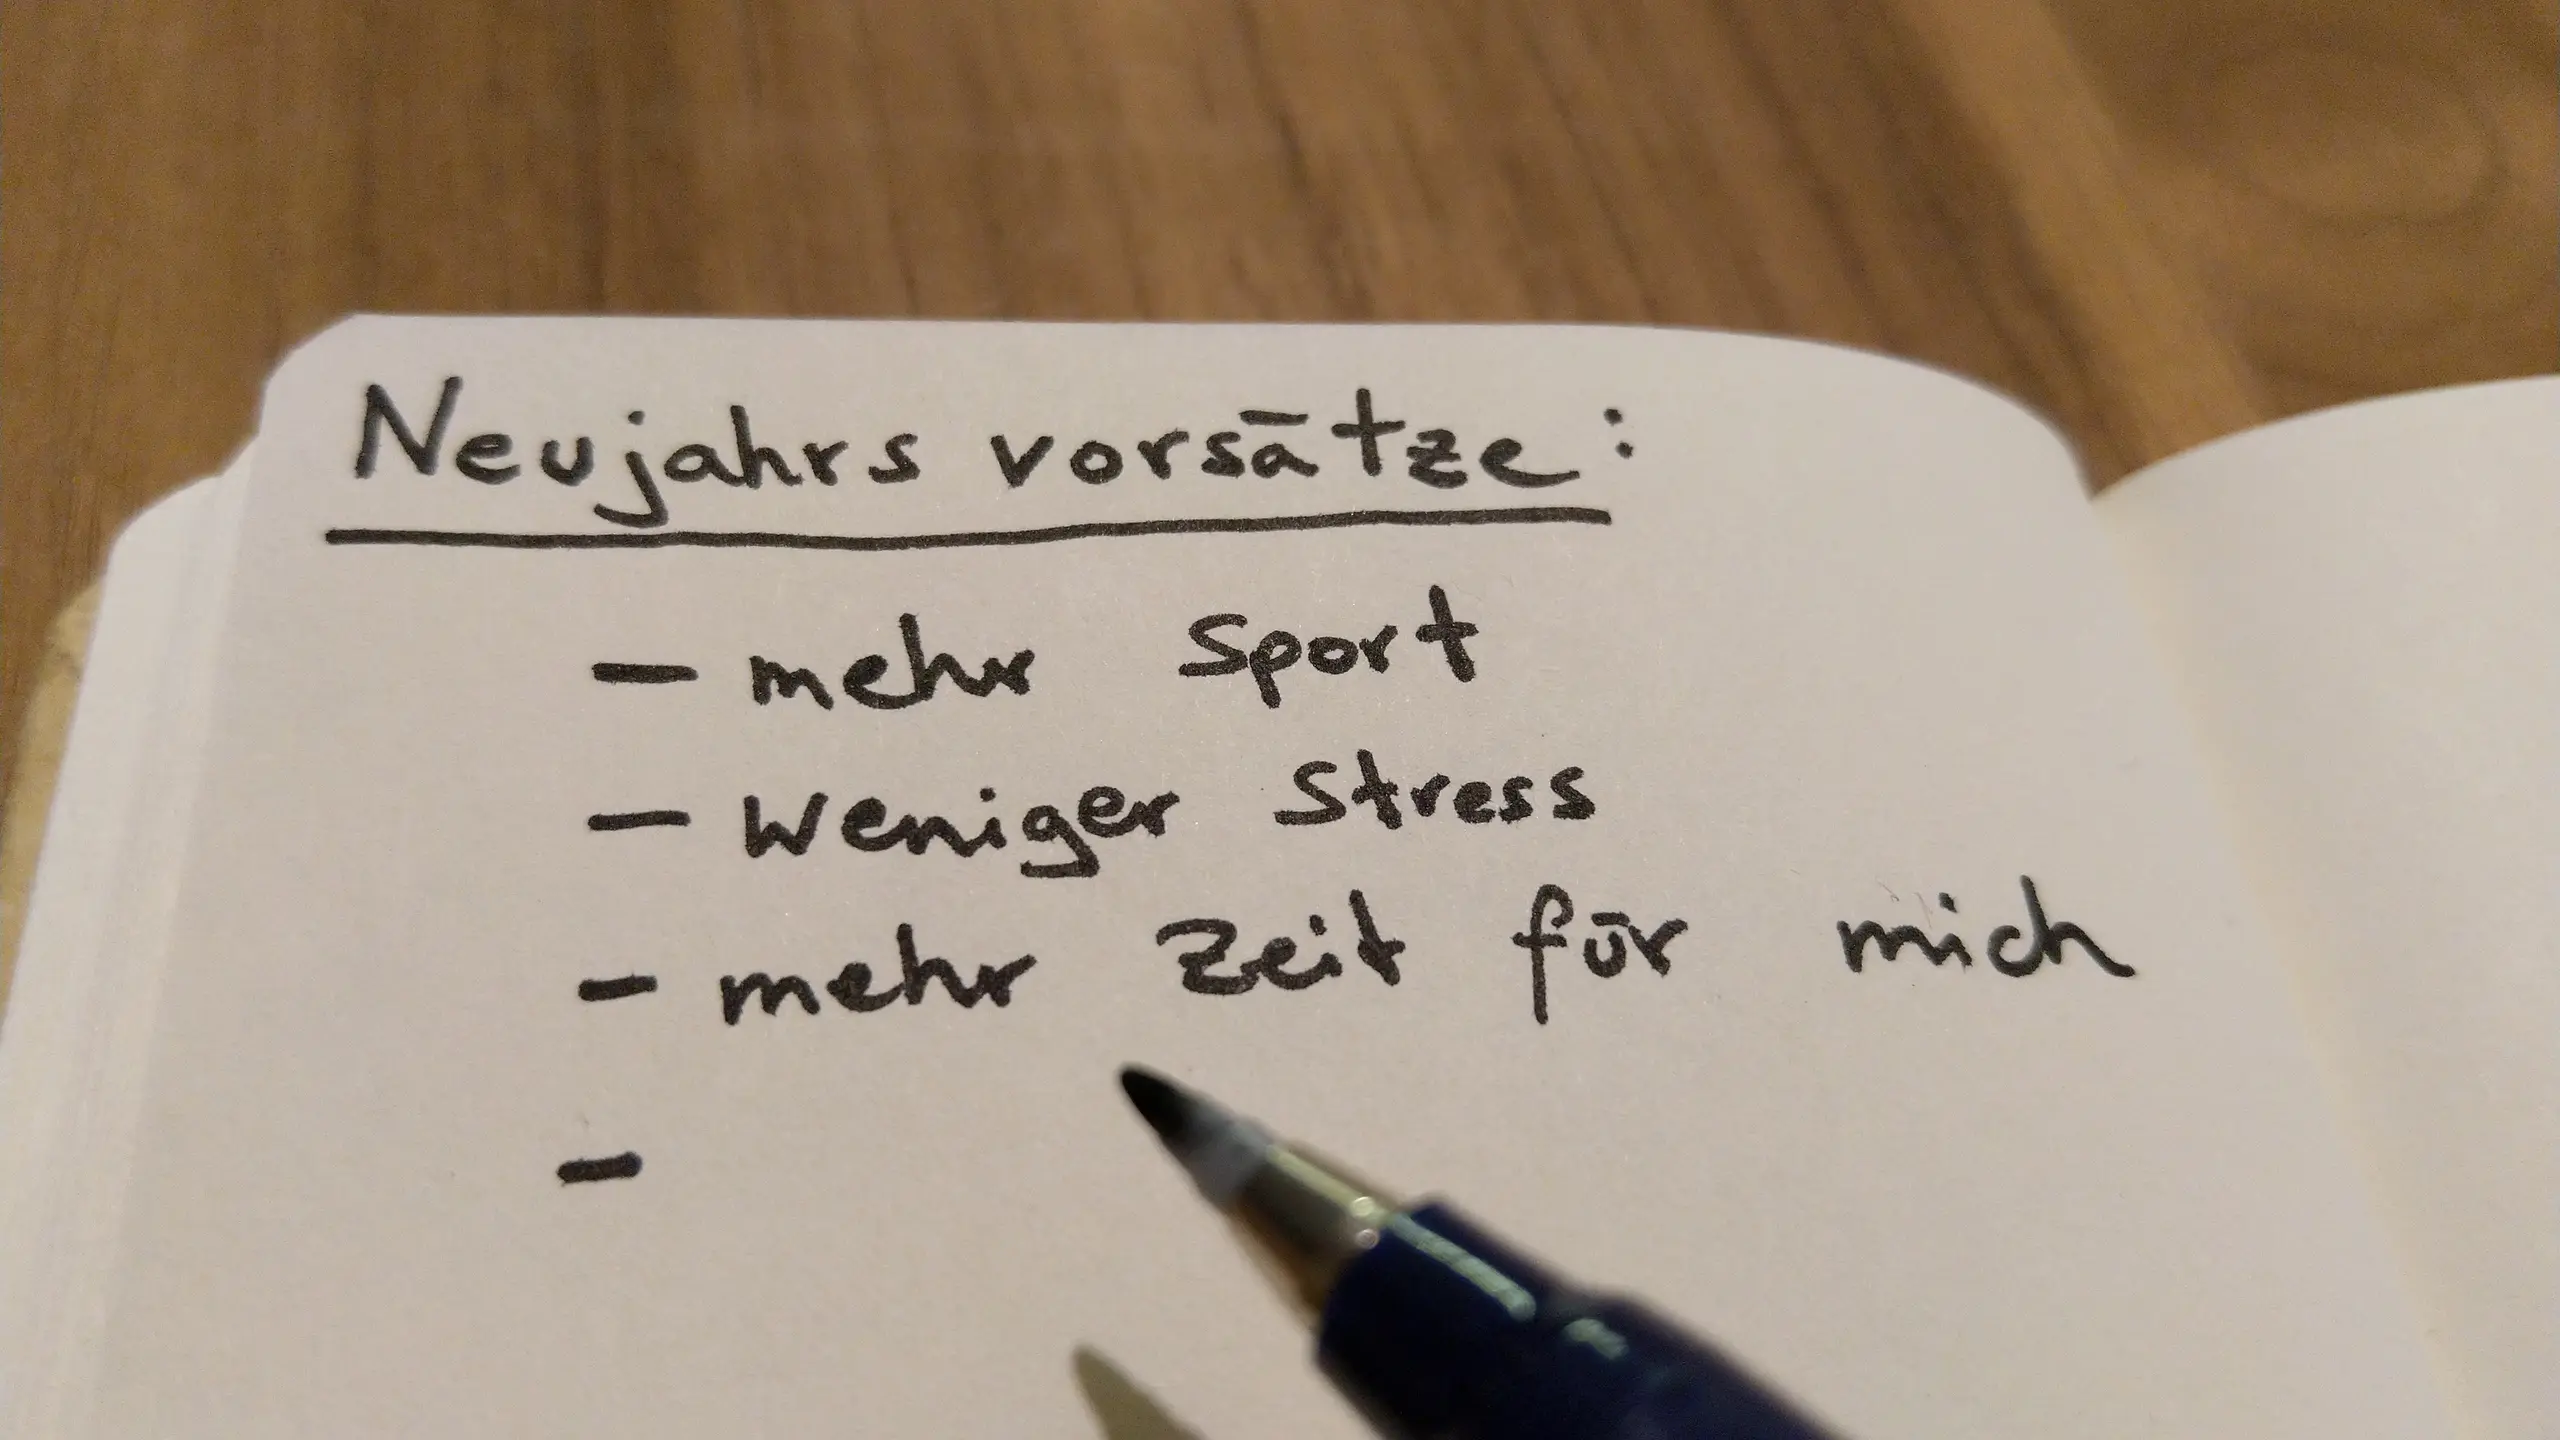 Neujahrs vorsätze:
- mehr Sport
- weniger Stress
- mehr Zeit für mich
-